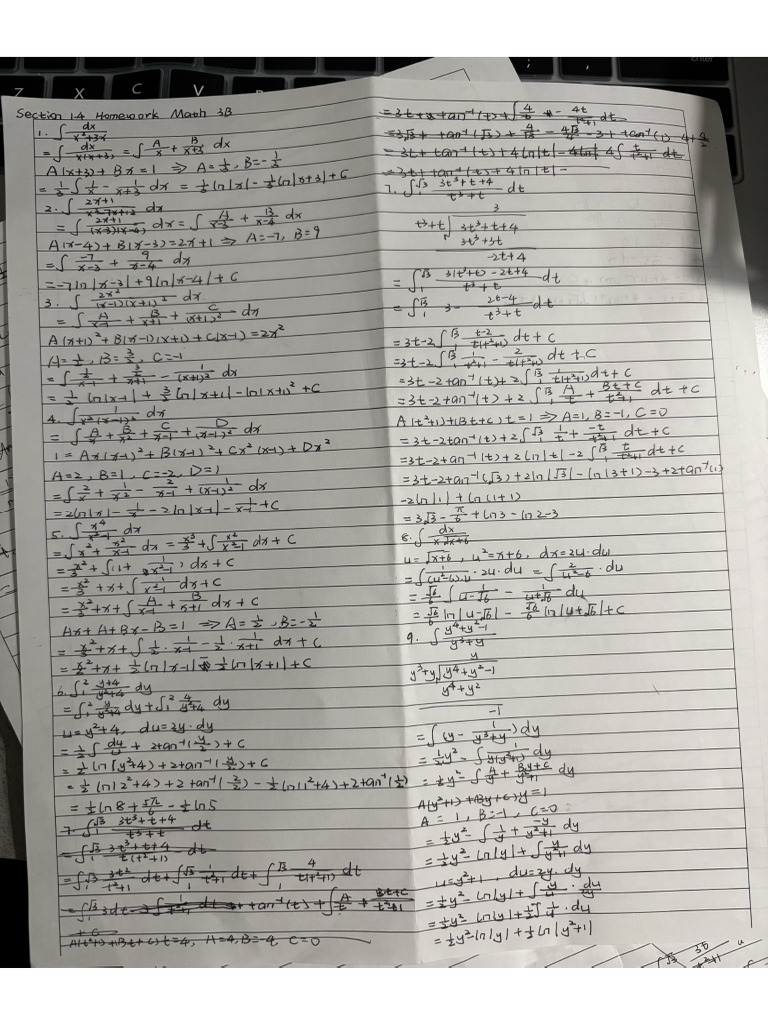 Section 1.4 Homework Math 3B
1. ∫ dx/(x²+3x)
= ∫ dx/(x(x+3)) = ∫ A/x + B/(x+3) dx
A(x+3) + Bx = 1 ⇒ A = 1/3, B = -1/3
= 1/3 ∫ 1/x - 1/(x+3) dx = 1/3 ln|x| - 1/3 ln|x+3| + C
2. ∫ (2x+1)/(x²-7x+12) dx
= ∫ (2x+1)/((x-3)(x-4)) dx = ∫ A/(x-3) + B/(x-4) dx
A(x-4) + B(x-3) = 2x+1 ⇒ A = -7, B = 9
= ∫ -7/(x-3) + 9/(x-4) dx
= -7 ln|x-3| + 9 ln|x-4| + C
3. ∫ 2x²/((x-1)(x+1)²) dx
= ∫ A/(x-1) + B/(x+1) + C/(x+1)² dx
A(x+1)² + B(x-1)(x+1) + C(x-1) = 2x²
A = 1/2, B = 3/2, C = -1
= ∫ 1/2/(x-1) + 3/2/(x+1) - 1/(x+1)² dx
= 1/2 ln|x-1| + 3/2 ln|x+1| - ln(x+1)² + C
4. ∫ 1/(x²(x-1)²) dx
= ∫ A/x + B/x² + C/(x-1) + D/(x-1)² dx
1 = Ax(x-1)² + B(x-1)² + Cx²(x-1) + Dx²
A = 2, B = 1, C = -2, D = 1
= ∫ 2/x + 1/x² - 2/(x-1) + 1/(x-1)² dx
= 2 ln|x| - 1/x - 2 ln|x-1| - 1/(x-1) + C
5. ∫ x⁴/(x²-1) dx
= ∫ x² + x²/(x²-1) dx = x³/3 + ∫ x²/(x²-1) dx + C
= x³/3 + ∫ (1 + 1/(x²-1)) dx + C
= x³/3 + x + ∫ 1/(x²-1) dx + C
= x³/3 + x + ∫ A/(x-1) + B/(x+1) dx + C
Ax + A + Bx - B = 1 ⇒ A = 1/2, B = -1/2
= x³/3 + x + ∫ 1/2 · 1/(x-1) - 1/2 · 1/(x+1) dx + C
= x³/3 + x + 1/2 ln|x-1| - 1/2 ln|x+1| + C
6. ∫₁² (y+4)/(y²+4) dy
= ∫₁² y/(y²+4) dy + ∫₁² 4/(y²+4) dy
u = y²+4, du = 2y·dy
= 1/2 ∫ du/u + 2tan⁻¹(y/2) + C
= 1/2 ln(y²+4) + 2tan⁻¹(y/2) + C
= 1/2 ln(2²+4) + 2 tan⁻¹(2/2) - 1/2 ln(1²+4) + 2tan⁻¹(1/2)
= 1/2 ln8 + 5π/6 - 1/2 ln5
7. ∫₁^√3 (3t³+t+4)/(t³+t) dt
= ∫₁^√3 (3t³+t+4)/(t(t²+1)) dt
= ∫₁^√3 3t²/(t²+1) dt + ∫₁^√3 1/(t²+1) dt + ∫₁^√3 4/(t(t²+1)) dt
A(t²+1) + (Bt+C)t = 4, A = 4, B = -4, C = 0
= 3t + tan⁻¹(t) + 4 ln|t| -
7. ∫₁^√3 (3t³+t+4)/(t³+t) dt
3
t³+t √ 3t³+t+4
3t³+3t
-2t+4
= ∫₁^√3 (3(t³+t) - 2t+4)/(t³+t) dt
= ∫₁^√3 3 - (2t-4)/(t³+t) dt
= 3t - 2∫₁^√3 (t-2)/(t(t²+1)) dt + C
= 3t - 2∫₁^√3 1/(t²+1) - 2/(t(t²+1)) dt + C
= 3t - 2tan⁻¹(t) + 2∫₁^√3 1/(t(t²+1)) dt + C
= 3t - 2tan⁻¹(t) + 2∫₁^√3 A/t + (Bt+C)/(t²+1) dt + C
A(t²+1) + (Bt+C)t = 1 ⇒ A = 1, B = -1, C = 0
= 3t - 2tan⁻¹(t) + 2∫₁^√3 1/t + -t/(t²+1) dt + C
= 3t - 2tan⁻¹(t) + 2 ln|t| - 2∫₁^√3 t/(t²+1) dt + C
= 3t - 2tan⁻¹(√3) + 2ln|√3| - ln(3+1) - 3 + 2tan⁻¹(1)
-2ln|1| + ln(1+1)
= 3√3 - π/6 + ln3 - ln2 - 3
8. ∫ dx/(x√(x+6))
u = √(x+6), u² = x+6, dx = 2u·du
= ∫ 1/((u²-6)·u) · 2u·du = ∫ 2/(u²-6) · du
= √6/6 ∫ 1/(u-√6) - 1/(u+√6) du
= √6/6 ln|u-√6| - √6/6 ln|u+√6| + C
9. ∫ (y⁴+y²-1)/(y³+y)
y
y³+y √ y⁴+y²-1
y⁴+y²
-1
= ∫ (y - 1/(y³+y)) dy
= 1/2y² - ∫ 1/(y(y²+1)) dy
= 1/2y² - ∫ A/y + (By+C)/(y²+1) dy
A(y²+1) + (By+C)y = 1
A = 1, B = -1, C = 0
= 1/2y² - ∫ 1/y + -y/(y²+1) dy
= 1/2y² - ln|y| + ∫ y/(y²+1) dy
u = y²+1, du = 2y·dy
= 1/2y² - ln|y| + ∫ y/u · du/2y
= 1/2y² - ln|y| + 1/2 ∫ 1/u · du
= 1/2y² - ln|y| + 1/2 ln|y²+1|